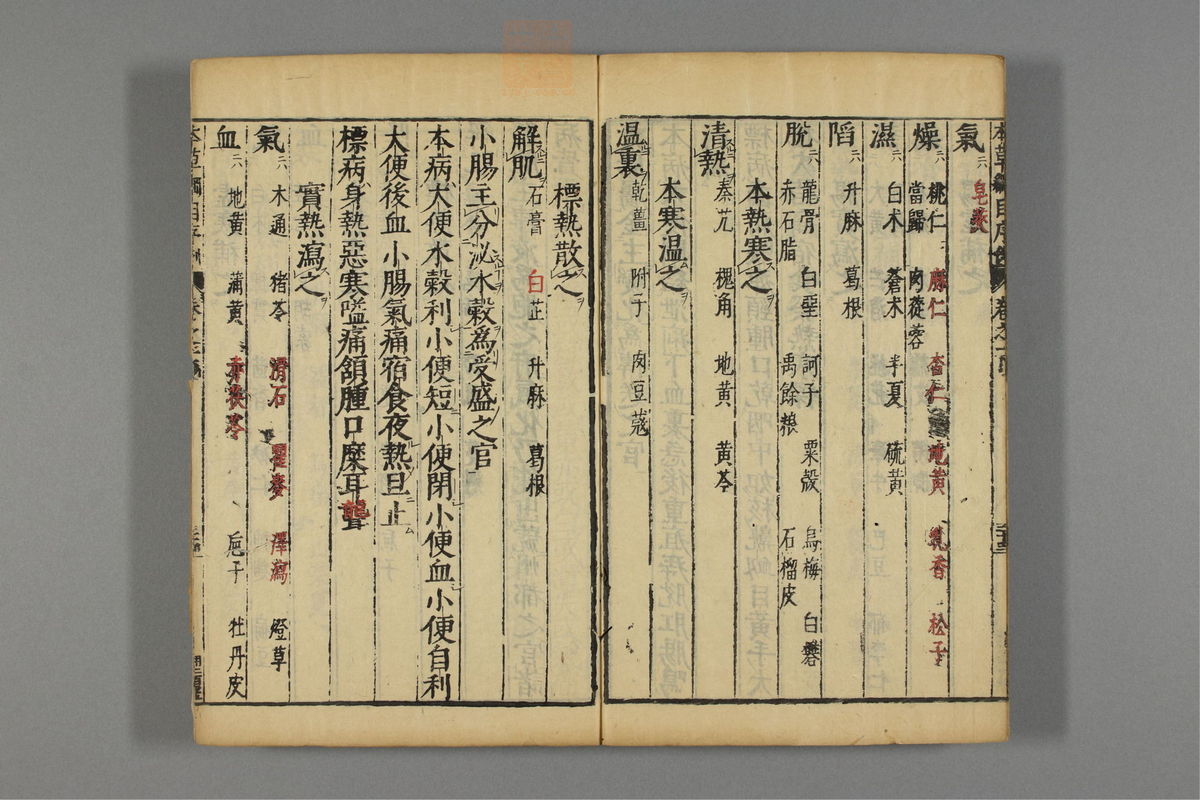 氣 皂莢
燥 桃仁 麻仁 杏仁 地黃 乳香 松子
當歸 肉蓯蓉
濕 白术 蒼术 半夏 硫黃
陷 升麻 葛根
脫 龍骨 白堊 訶子 粟殼 烏梅 白礬
赤石脂 禹餘粮 石榴皮
本熱寒之
清熱 秦艽 槐角 地黃 黃芩
本寒溫之
温裏 乾薑 附子 肉豆蔻
標熱散之
解肌 石膏 白芷 升麻 葛根
小腸主分泌水穀爲受盛之官
本病大便水穀利小便短小便閉小便血小便自利
大便後血小腸氣痛宿食夜熱旦止
標病身熱惡寒嗌痛頷腫口糜耳聾
實熱瀉之
氣 木通 猪苓 滑石 瞿麥 澤瀉 燈草
血 地黃 蒲黃 赤茯苓 梔子 牡丹皮